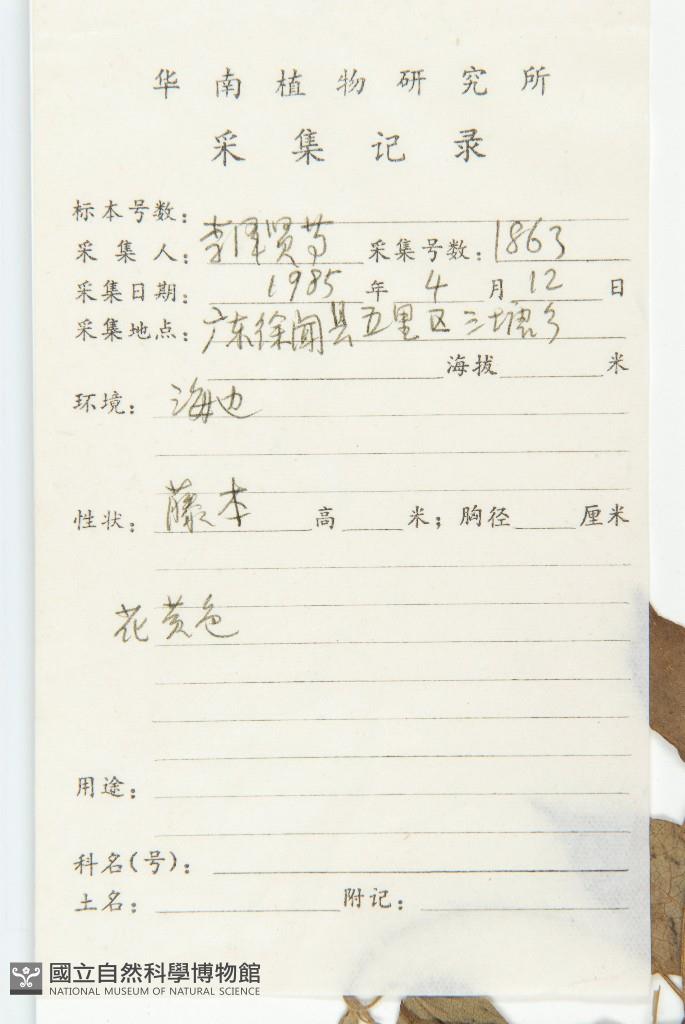 华南植物研究所
采集记录
标本号数:
采集人: 李泽贤等 采集号数: 1863
采集日期: 1985 年 4 月 12 日
采集地点: 广东徐闻县五里区三塘乡
海拔 米
环境: 海边
性状: 藤本 高 米; 胸径 厘米
花黄色
用途:
科名(号):
土名: 附记:
國立自然科學博物館
NATIONAL MUSEUM OF NATURAL SCIENCE